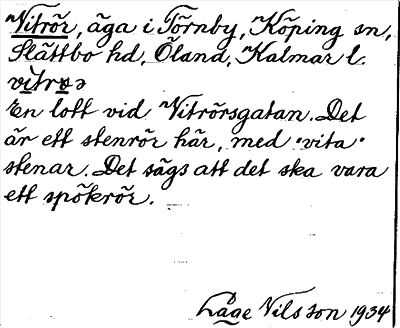 Vitrör, äga i Törnby, Köping sn,
Slättbo hd, Öland, Kalmar l.
vìtrøͅə
En lott vid Vitrörsgatan. Det
är ett stenrör här, med "vita"
stenar. Det sägs att det ska vara
ett spökrör.
Låge Nilsson 1934